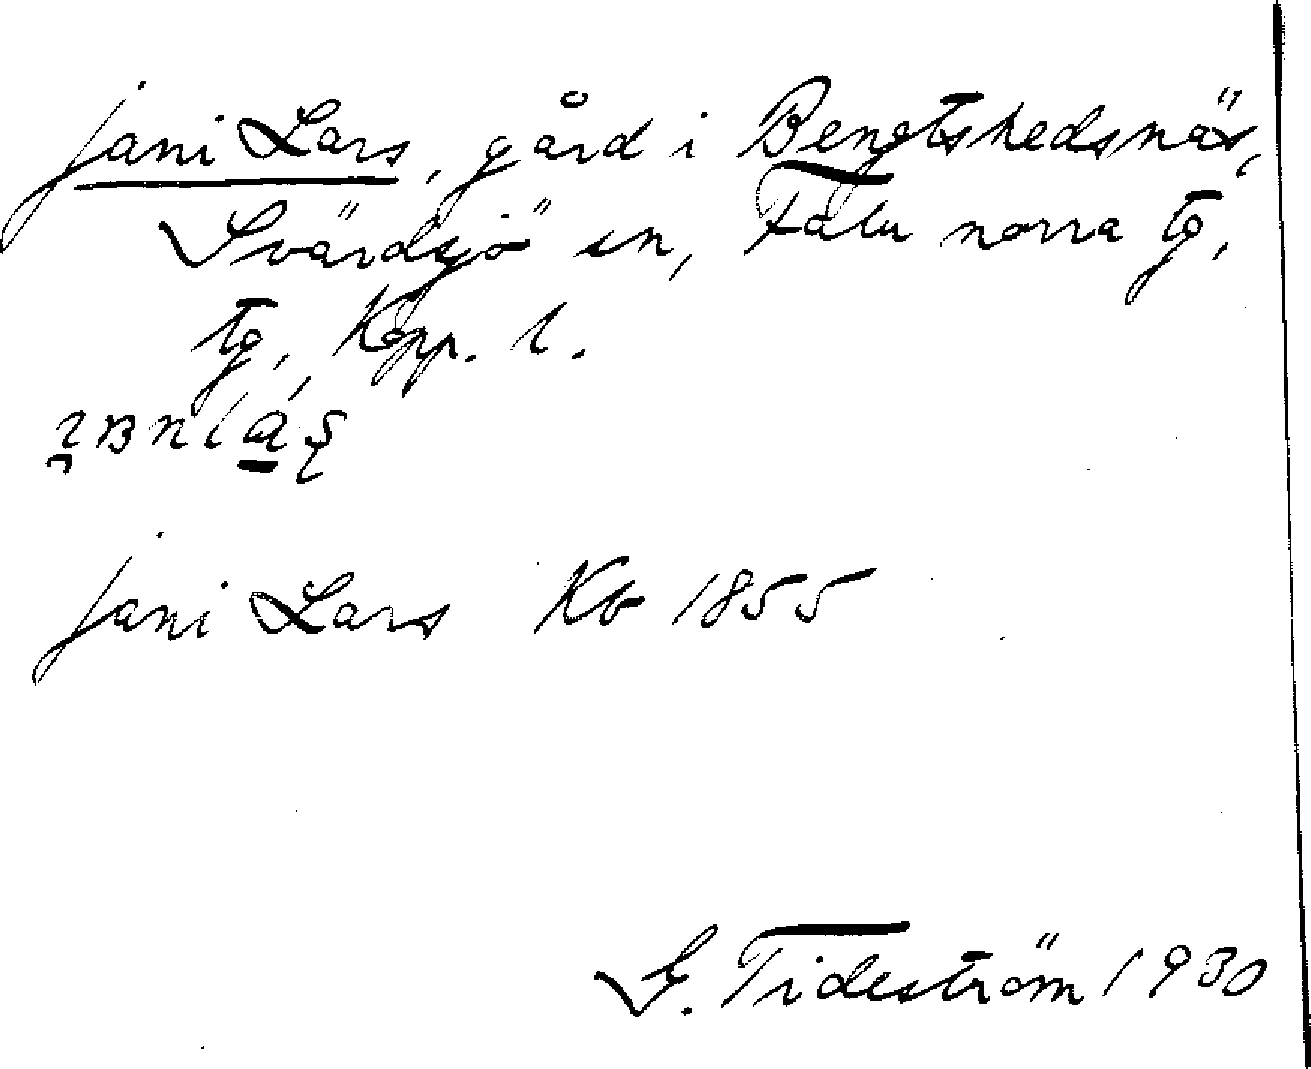 Jani Lars, gård i Bengtshedsnäs,
Svärdsjö sn, Falu norra tg,
tg, Kopp. l.
Jani Lars Kb 1855
G. Tideström 1930